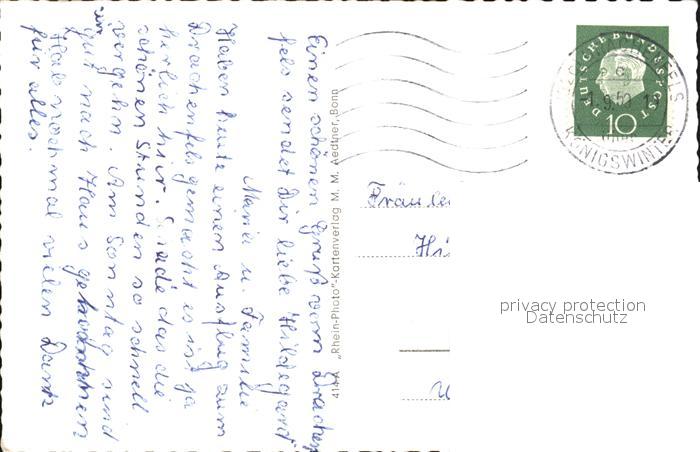 Einen schönen Gruß vom Drachen
fels sendet Dir liebe Hildegard
Maria u. Familie
Haben heute einen Ausflug zum
Drachenfels gemacht es ist ja
herlich hier. Schade das die
schönen Stunden so schnell
vergehn. Am Sonntag sind
wir
gut nach Haus gekommen
Hab nochmal vielen Dank
für alles.
414 A „Rhein-Photo"-Kartenverlag M. M. Aedtner, Bonn
DEUTSCHE BUNDESPOST
10
KÖNIGSWINTER
Fräulein
Hi
privacy protection
Datenschutz